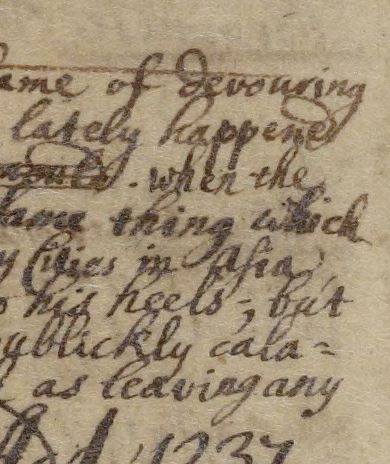 ame of devouring
lately happened
when the
same thing which
Cities in Asia,
his heels; but
ublickly cala=
as leaving any
1237